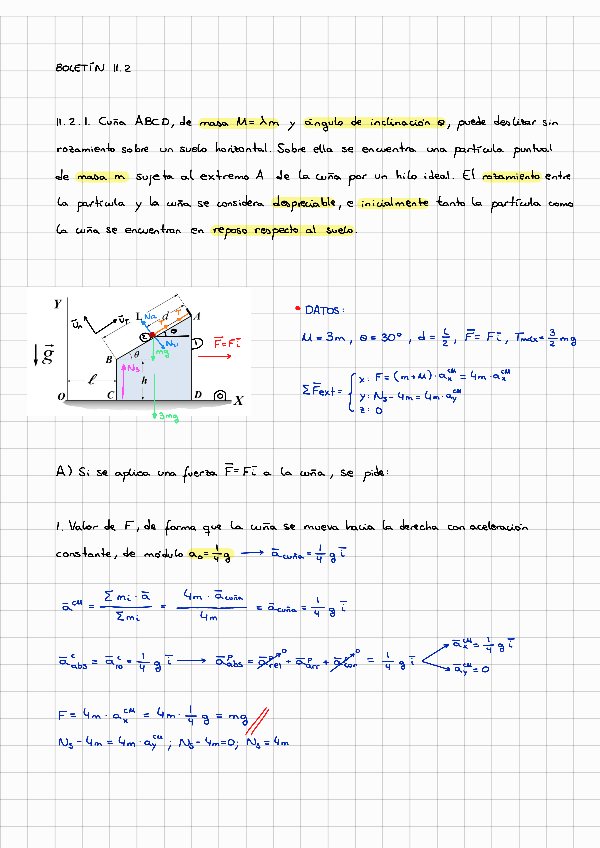 BOLETÍN 11.2
11.2.1. Cuña ABCD, de masa M=λm y ángulo de inclinación θ, puede deslizar sin
rozamiento sobre un suelo horizontal. Sobre ella se encuentra una partícula puntual
de masa m sujeta al extremo A de la cuña por un hilo ideal. El rozamiento entre
la partícula y la cuña se considera despreciable, e inicialmente tanto la partícula como
la cuña se encuentran en reposo respecto al suelo.
Y
L Na d A
mg
N21
θ
1
F̄=F ī
B
g⃗
N3
h
ℓ
O C D X
3mg
• DATOS:
M = 3m , θ = 30º , d = L/2 , F̄ = F ī , Tmáx = 3/2 mg
ΣF̄ext = { x: F = (m+M)·ax^CM = 4m·ax^CM
y: N3 - 4m = 4m·ay^CM
z: 0
A) Si se aplica una fuerza F̄=F ī a la cuña, se pide:
1. Valor de F, de forma que la cuña se mueva hacia la derecha con aceleración
constante, de módulo a0 = 1/4 g → ācuña = 1/4 g ī
ā^CM = Σmi·ā / Σmi = 4m·ācuña / 4m = ācuña = 1/4 g ī
ā^c abs = ā^c 10 = 1/4 g ī → ā^p abs = ā^p rel + ā^p arr + ā^p cor = 1/4 g ī
āx^CM = 1/4 g ī
āy^CM = 0
F = 4m·ax^CM = 4m·1/4 g = mg //
N3 - 4m = 4m·ay^CM ; N3 - 4m = 0; N3 = 4m